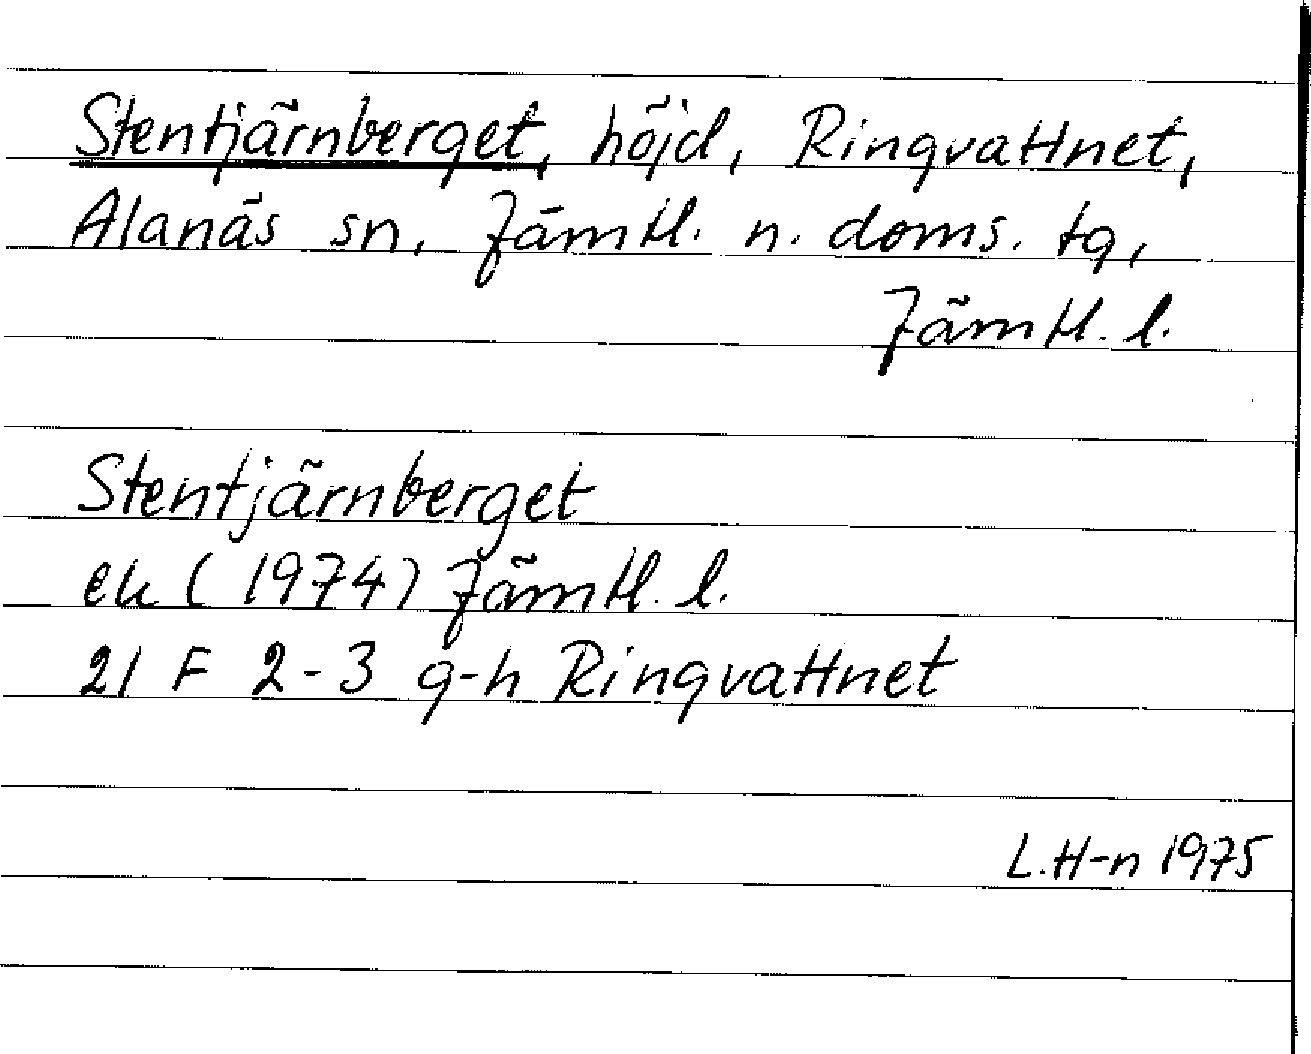 Stentjärnberget, höjd, Ringvattnet,
Alanäs sn, Jämtl. n. doms. tg,
Jämtl. l.
Stentjärnberget
ek (1974) Jämtl. l.
21 F 2-3 g-h Ringvattnet
L.H-n 1975